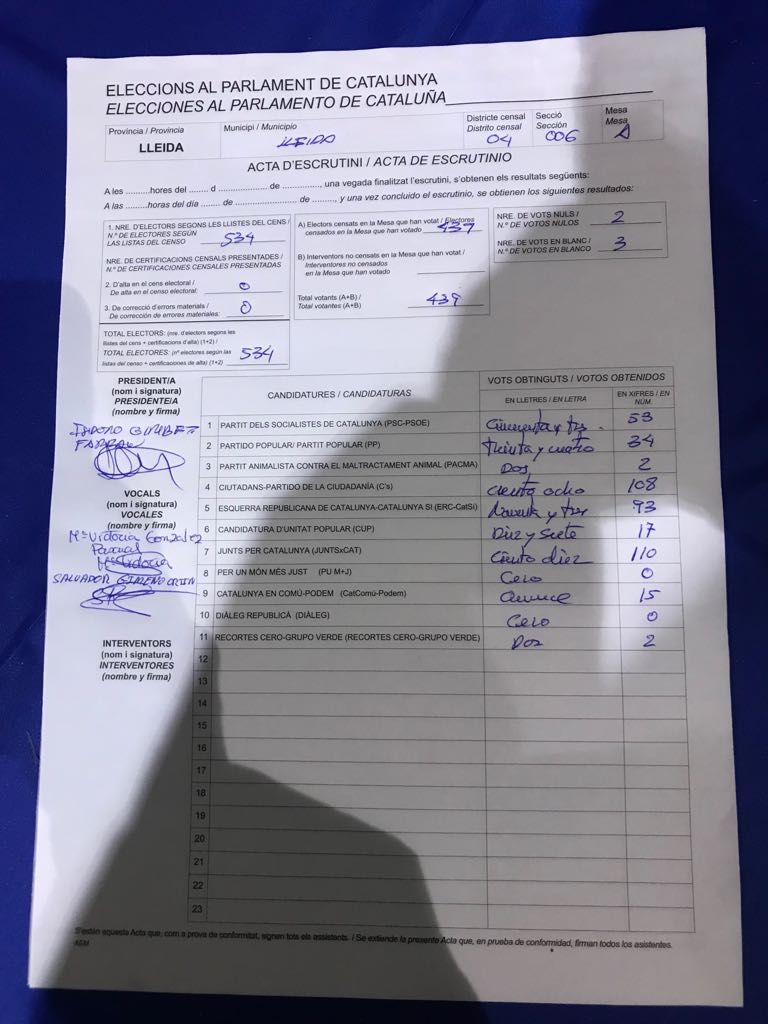 ELECCIONS AL PARLAMENT DE CATALUNYA
ELECCIONES AL PARLAMENTO DE CATALUÑA
Província / Provincia
LLEIDA
Municipi / Municipio
LLEIDA
Districte censal
Distrito censal
04
Secció
Sección
006
Mesa
Mesa
A
ACTA D'ESCRUTINI / ACTA DE ESCRUTINIO
A les .........hores del ........ d ..................... de ..............., una vegada finalitzat l'escrutini, s'obtenen els resultats següents:
A las .........horas del día ........ de ..................... de .........., y una vez concluido el escrutinio, se obtienen los siguientes resultados:
1. NRE. D'ELECTORS SEGONS LES LLISTES DEL CENS /
N.º DE ELECTORES SEGÚN
LAS LISTAS DEL CENSO 534
NRE. DE CERTIFICACIONS CENSALS PRESENTADES /
N.º DE CERTIFICACIONES CENSALES PRESENTADAS
2. D'alta en el cens electoral /
De alta en el censo electoral: 0
3. De correcció d'errors materials /
De corrección de errores materiales: 0
TOTAL ELECTORS: (nre. d'electors segons les
llistes del cens + certificacions d'alta) (1+2) /
TOTAL ELECTORES: (nº electores según las
listas del censo + certificaciones de alta) (1+2) 534
A) Electors censats en la Mesa que han votat / Electores
censados en la Mesa que han votado 439
B) Interventors no censats en la Mesa que han votat /
Interventores no censados
en la Mesa que han votado
Total votants (A+B) /
Total votantes (A+B) 439
NRE. DE VOTS NULS /
N.º DE VOTOS NULOS 2
NRE. DE VOTS EN BLANC /
N.º DE VOTOS EN BLANCO 3
PRESIDENT/A
(nom i signatura)
PRESIDENTE/A
(nombre y firma)
VOCALS
(nom i signatura)
VOCALES
(nombre y firma)
Mª Victoria Gonzalez
Pascual
Mª Victoria
SALVADOR GIMENO
INTERVENTORS
(nom i signatura)
INTERVENTORES
(nombre y firma)
CANDIDATURES / CANDIDATURAS
VOTS OBTINGUTS / VOTOS OBTENIDOS
EN LLETRES / EN LETRA
EN XIFRES / EN NÚM.
1 PARTIT DELS SOCIALISTES DE CATALUNYA (PSC-PSOE) Cincuenta y tres 53
2 PARTIDO POPULAR/ PARTIT POPULAR (PP) treinta y cuatro 34
3 PARTIT ANIMALISTA CONTRA EL MALTRACTAMENT ANIMAL (PACMA) Dos 2
4 CIUTADANS-PARTIDO DE LA CIUDADANÍA (C's) ciento ocho 108
5 ESQUERRA REPUBLICANA DE CATALUNYA-CATALUNYA SÍ (ERC-CatSí) noventa y tres 93
6 CANDIDATURA D'UNITAT POPULAR (CUP) Diez y siete 17
7 JUNTS PER CATALUNYA (JUNTSxCAT) Ciento diez 110
8 PER UN MÓN MÉS JUST (PU M+J) Cero 0
9 CATALUNYA EN COMÚ-PODEM (CatComú-Podem) Quince 15
10 DIÀLEG REPUBLICÀ (DIÀLEG) Cero 0
11 RECORTES CERO-GRUPO VERDE (RECORTES CERO-GRUPO VERDE) Dos 2
12
13
14
15
16
17
18
19
20
21
22
23
S'estén aquesta Acta que, com a prova de conformitat, signen tots els assistents. / Se extiende la presente Acta que, en prueba de conformidad, firman todos los asistentes.